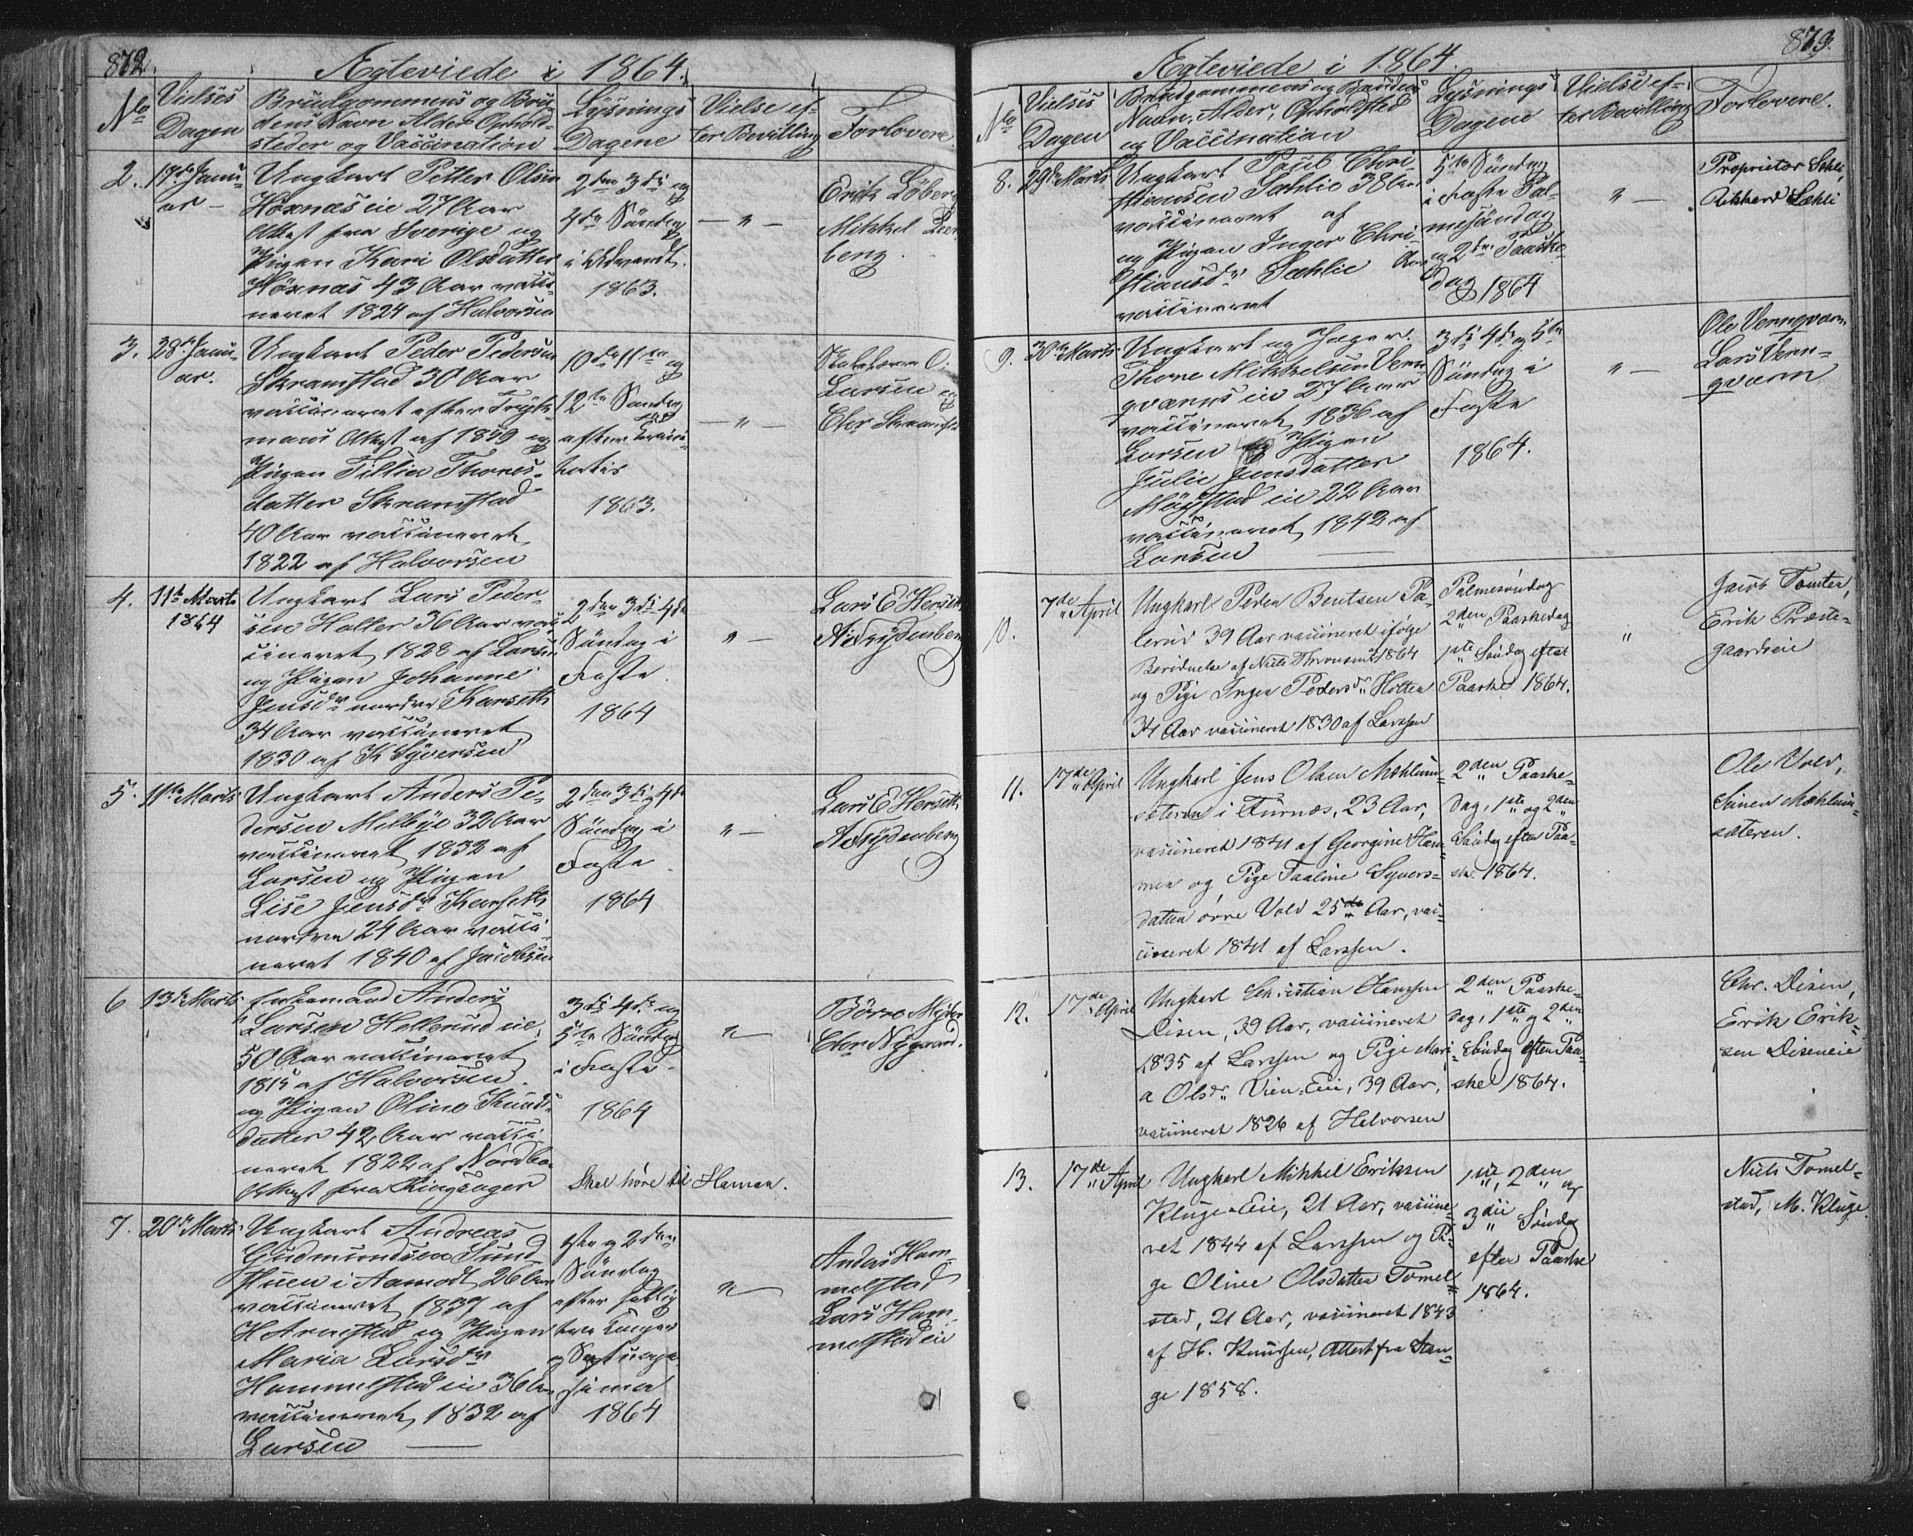 872.
Ægteviede i 1864.
No
Vielses Dagen
Brudgommens og Brudens Navn Alder Opholdssteder og Vaccination
Lysnings Dagene
Vielse efter Bevilling
Forlovere
2.
17de Januar
Ungkarl Petter Olsen
27 Aar
Attest fra Sverige og
Pigen Kari Olsdatter
43 Aar vacci-
neret 1824 af Halvorsen
2den 3die og
4de Søndag
i Advendt.
1863.
— " —
Erik Løberg
Mikkel
berg.
3.
28de Janu-
ar.
Ungkarl Peder Pedersen
Skramstad 30 Aar
vaccineret efter
Attest af 1859 og
Pigen Tillia Thores-
datter Skramstad
40 Aar vaccineret
1822 af Halvorsen
10de 11te og
12te Søndag
efter Trini-
tatis
1863.
— " —
O.
Larsen og
Skramstad
4.
11te Marts
1864
Ungkarl Lars Peder-
sen Holler 36 Aar vac-
cineret 1828 af Larsen
og Pigen Johanne
Jensdr nordre Karseth
34 Aar vaccineret
1830 af K Syversen
2den 3die 4de
Søndag i
Faste.
1864
" —
Lars E Herseth
A Frydenberg
5.
11te Marts
Ungkarl Anders Pe-
dersen Melbye 32 Aar
vaccineret 1832 af
Larsen og Pigen
Lise Jensdr Karseth
nordre 24 Aar vacci-
neret 1840 af Jacobsen
2den 3die 4de
Søndag i
Faste
1864
" —
Lars E Herseth
A Frydenberg
6
13de Marts
Enkemand Anders
Larsen Hellerud eie
50 Aar vaccineret
1815 af Halvorsen.
og Pigen Oline Knuds-
datter 42 Aar vacci-
neret 1822 af
Attest fra Ringsager
3die 4de og
5te Søndag
i Faste.
1864
Skal høre til Hamar.
" —
Børre
Chr Nygaard.
7.
20de Marts
Ungkarl Andreas
Gudmundsen
i Aamodt 26 Aar
vaccineret 1837 af
H Arnestad og Pigen
Maria Larsdr
Hammelstad eie 36 Aar
vaccineret 1832 af
Larsen
1ste og 2den
Søndag
efter Hellig
tre Konger
og Septuage-
sima
1864
" —
Anders Ham-
melstad
Lars Ham-
melstadeie
873.
Ægteviede i 1864.
No
Vielses Dagen
Brudgommens og Brudens Navn, Alder, Opholdsted og Vaccination
Lysnings Dagene
Vielse efter Bevilling
Forlovere.
8.
29de Marts
Ungkarl Chri-
stiansen Sæhlie 38 Aar
vaccineret af
og Pigen Inger Chri-
stiansdr Sæhlie Aar
vaccineret
5te Søndag
i Faste Pal-
mesøndag
og 2den Paaske-
dag 1864
" —
Proprietær Sehli,
Rikhard Sæhli
9.
30te Marts
Ungkarl og Jæger
Thore Mikkelsen Venn-
gværns eie 27 Aar
vaccineret 1836 af
Larsen Pigen
Julie Jensdatter
eie 22 Aar
vaccineret 1842 af
Larsen
3die 4de og 5te
Søndag i
Faste
1864.
" —
Ole Venngværn
Lars Venn-
gværn
10.
7de April
Ungkarl Peder Bentsen Pa-
lerud 39 Aar vaccineret ifølge
Beridnelse af Niels Thronsen 1864
og Pige Inger Pedersdr Holten
34 Aar vaccineret 1830 af Larssen
Palmesøndag
2den Paaskedag
1ste Søndag efter
Paaske 1864.
"
Jacob Tomter,
Erik Præste-
gaardseie
11.
17de April
Ungkarl Jens Olsen Mæhlum-
sæteren i Furnæs, 23 Aar,
vaccineret 1841 af Georgine Ham-
mer og Pige Taaline Syvers-
datter øvre Vold 25 Aar, vac-
cineret 1841 af Larssen.
2den Paaske-
dag, 1ste og 2den
Søndag efter Paa-
ske 1864.
Ole Vold,
Simen Mæhlum-
sæteren.
12.
17de April
Ungkarl Christian Hanssen
Disen, 39 Aar, vaccineret
1835 af Larssen og Pige Mari-
a Olsdr Vien-Eie, 39 Aar,
vaccineret 1826 af Halvorsen
2den Paaske-
dag, 1ste og 2den
Søndag efter Paa-
ske 1864.
Chr. Disen,
Erik Erik-
sen Diseneie
13.
17de April
Ungkarl Mikkel Eriksen
Kluge-Eie, 21 Aar, vaccine-
ret 1844 af Larssen og Pi-
ge Oline Olsdatter Tomel-
stad, 21 Aar, vaccineret 1843
af H. Knussen, Attest fra Stan-
ge 1858.
1ste, 2den og
3die Søndag
efter Paaske
1864.
Niels Tomel-
stad, M. Kluge.